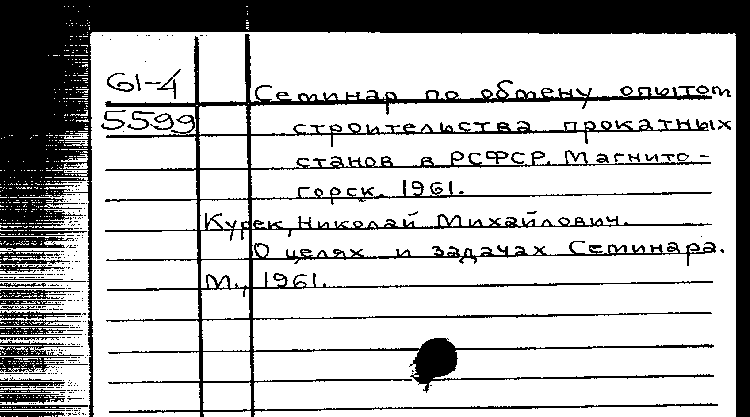 61-4
Семинар по обмену опытом
5599
строительства прокатных
станов в РСФСР. Магнито-
горск. 1961.
Курек, Николай Михайлович.
О целях и задачах Семинара.
М., 1961.